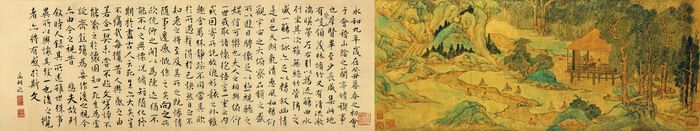 永和九年歲在癸丑暮春之初會
于會稽山陰之蘭亭脩禊事
也群賢畢至少長咸集此地
有崇山峻領茂林脩竹又有清流激
湍映帶左右引以為流觴曲水
列坐其次雖無絲竹管弦之
盛一觴一詠亦足以暢敘幽情
是日也天朗氣清惠風和暢仰
觀宇宙之大俯察品類之盛
所以遊目騁懷足以極視聽之
娛信可樂也夫人之相與俯仰
一世或取諸懷抱悟言一室之內
或因寄所託放浪形骸之外雖
趣舍萬殊靜躁不同當其欣
於所遇暫得於己快然自足不
知老之將至及其所之既惓情
隨事遷感慨係之矣向之所
欣俛仰之間以為陳迹猶不
能不以之興懷況脩短隨化終
期於盡古人云死生亦大矣豈
不痛哉每攬昔人興感之由
若合一契未嘗不臨文嗟悼不
能喻之於懷固知一死生為虛
誕齊彭殤為妄作後之視今
亦由今之視昔悲夫故列
敘時人錄其所述雖世殊事
異所以興懷其致一也後之攬
者亦將有感於斯文